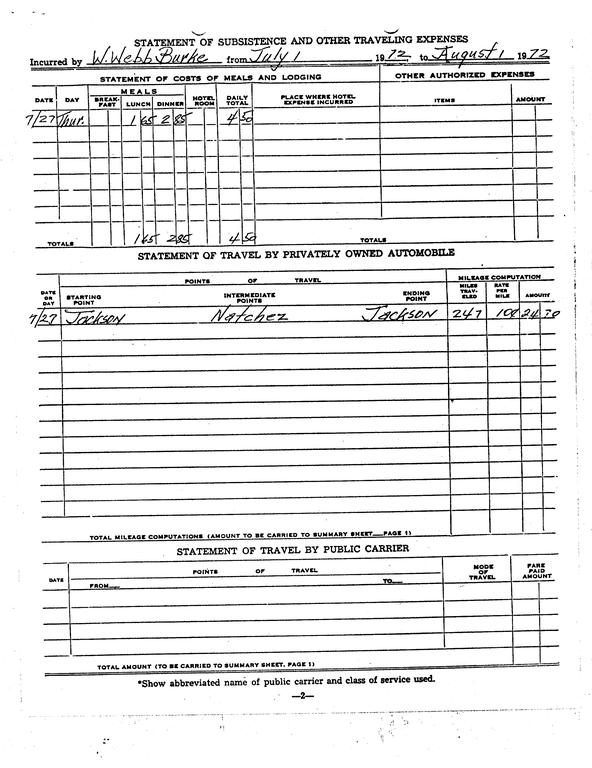 STATEMENT OF SUBSISTENCE AND OTHER TRAVELING EXPENSES
Incurred by W. Webb Burke from July 1 1972 to August 1 1972
STATEMENT OF COSTS OF MEALS AND LODGING OTHER AUTHORIZED EXPENSES
DATE DAY MEALS BREAKFAST LUNCH DINNER HOTEL ROOM DAILY TOTAL PLACE WHERE HOTEL EXPENSE INCURRED ITEMS AMOUNT
7/27 Thur. 1 65 2 85 4 50
TOTALS 1 65 2 85 4 50 TOTALS
STATEMENT OF TRAVEL BY PRIVATELY OWNED AUTOMOBILE
POINTS OF TRAVEL MILEAGE COMPUTATION
DATE OR DAY STARTING POINT INTERMEDIATE POINTS ENDING POINT MILES TRAVELED RATE PER MILE AMOUNT
7/27 Jackson Natchez Jackson 247 10¢ 24 70
TOTAL MILEAGE COMPUTATIONS (AMOUNT TO BE CARRIED TO SUMMARY SHEET—PAGE 1)
STATEMENT OF TRAVEL BY PUBLIC CARRIER
DATE POINTS OF TRAVEL MODE OF TRAVEL FARE PAID AMOUNT
FROM— TO—
TOTAL AMOUNT (TO BE CARRIED TO SUMMARY SHEET, PAGE 1)
*Show abbreviated name of public carrier and class of service used.
—2—